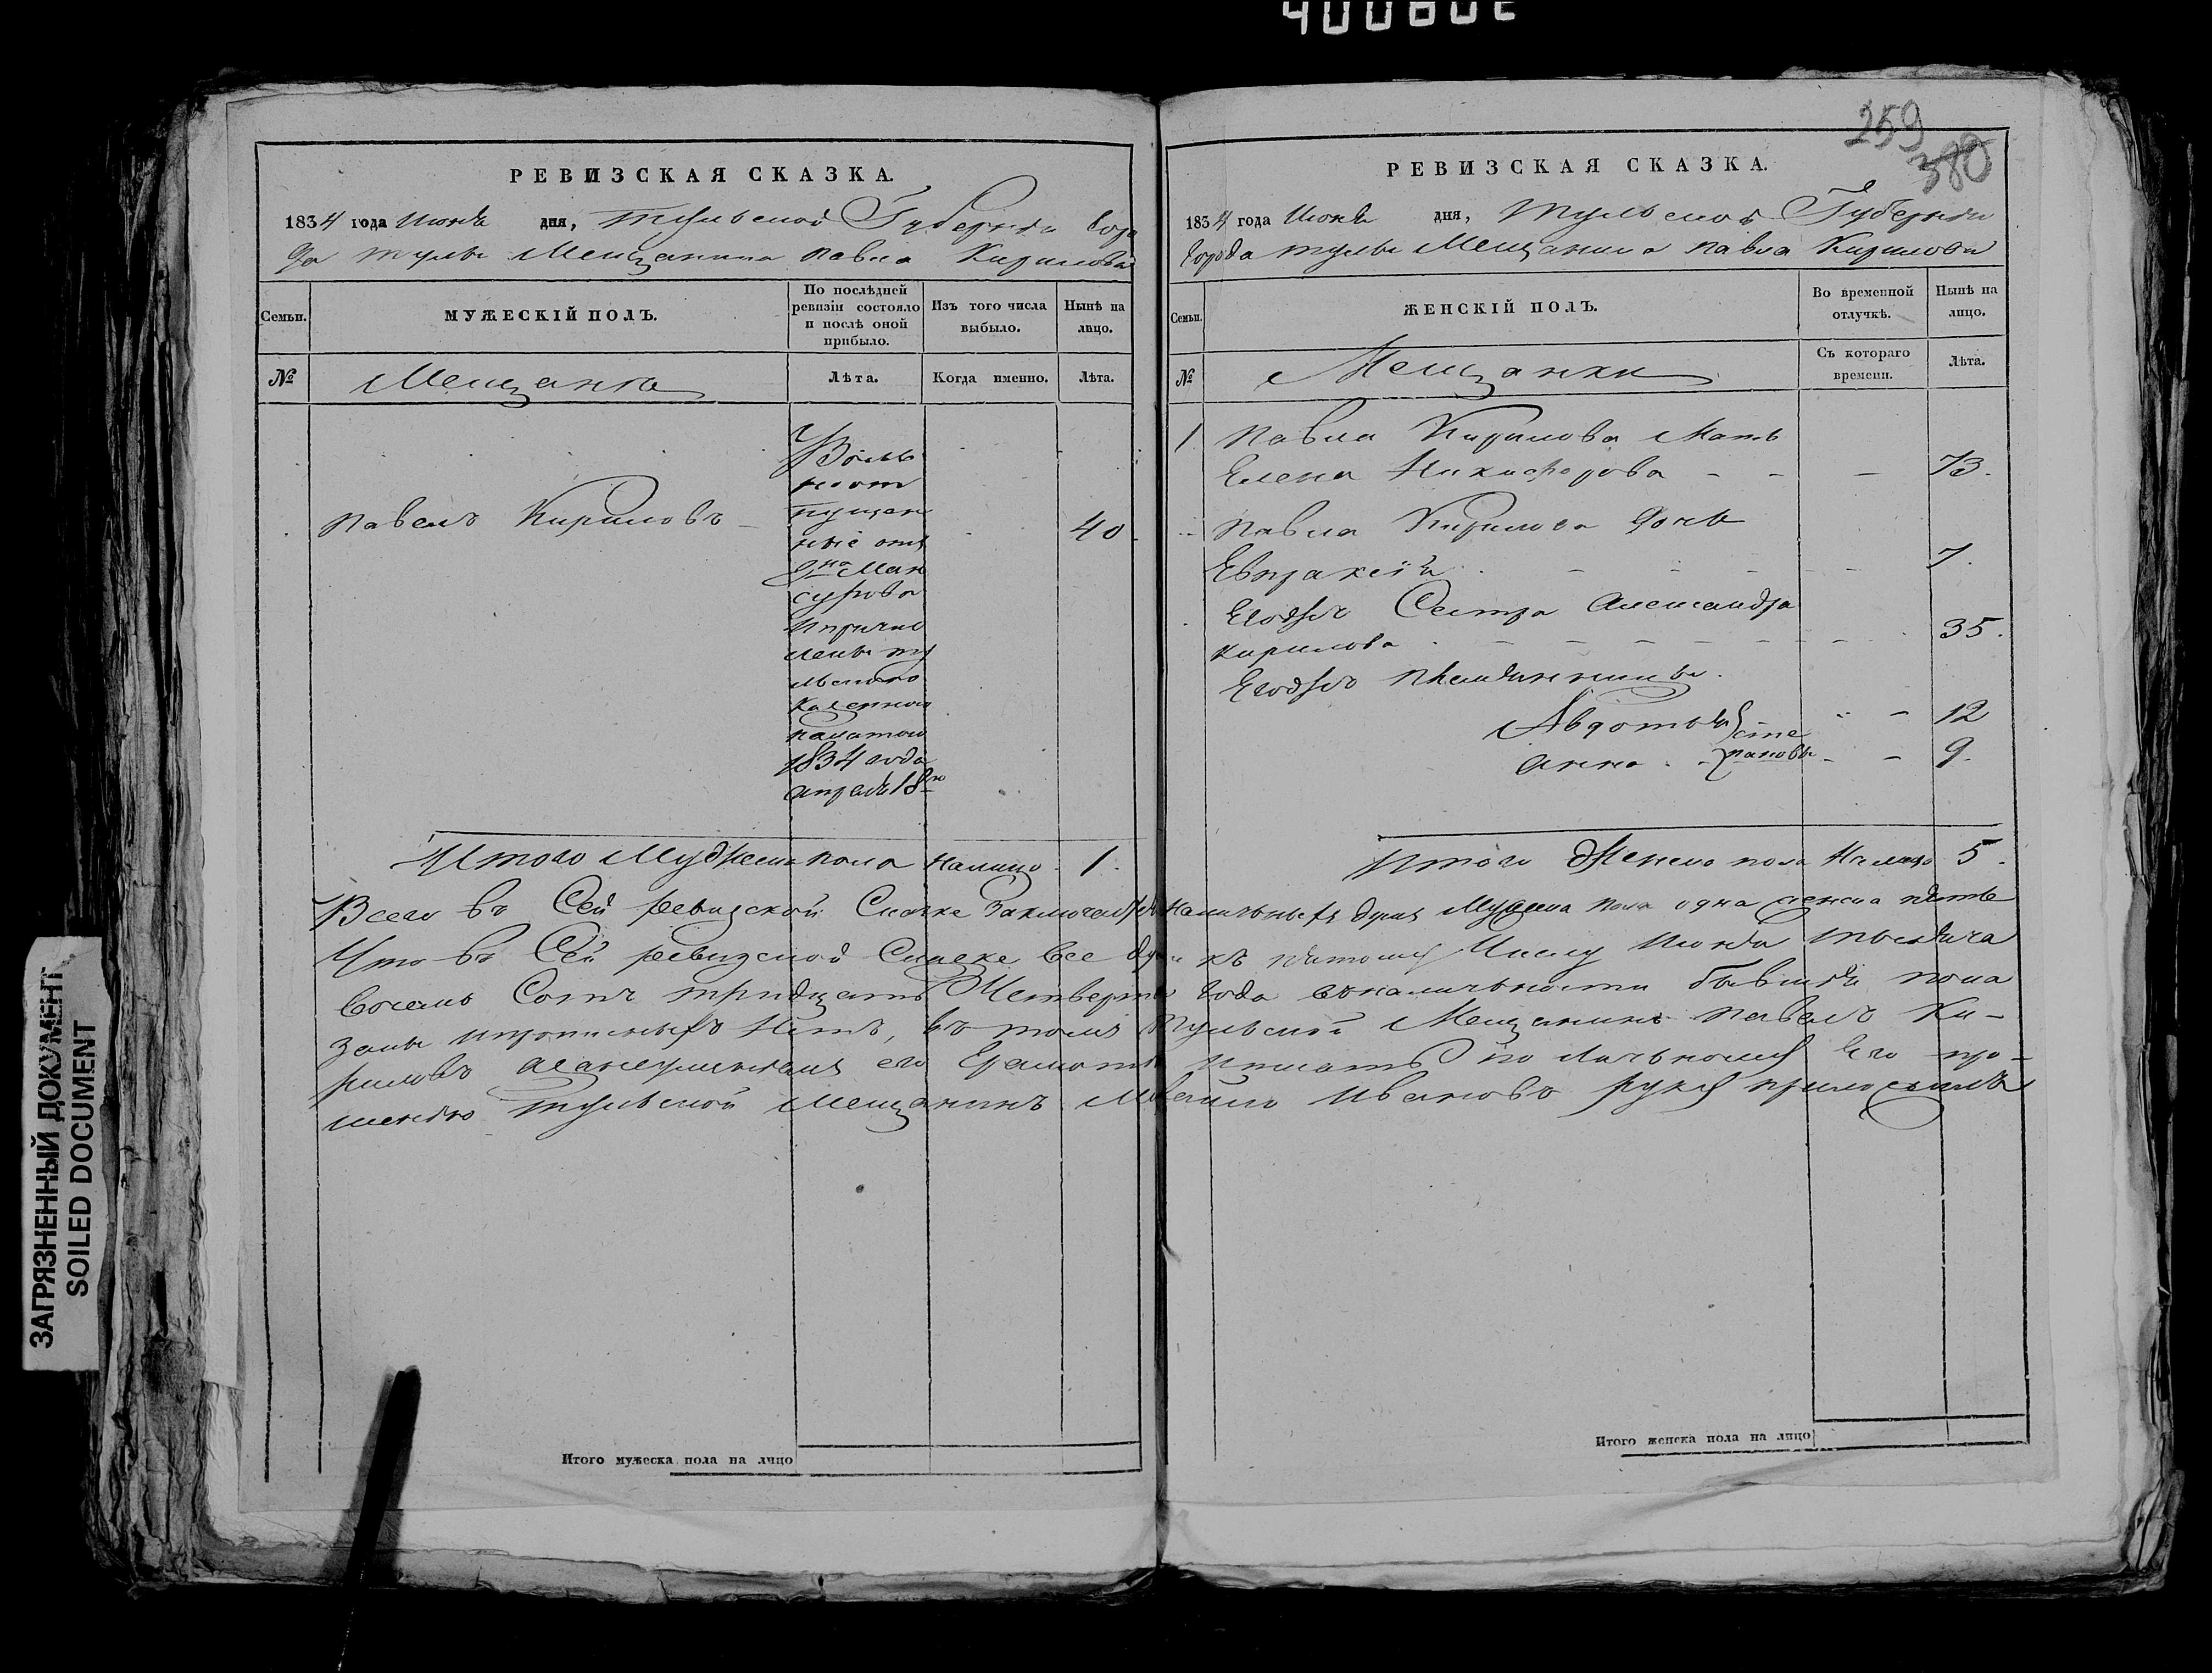 400802
259
380
РЕВИЗСКАЯ СКАЗКА.
1834 года Июня дня, Тульской Губернiи Горо
да тулы Мещанина павла Кирилова
Семьи.
МУЖЕСКІЙ ПОЛЪ.
По послѣдней
ревизіи состояло
и послѣ оной
прибыло.
Изъ того числа
выбыло.
Нынѣ на
лицо.
№
Мещаня
Лѣта.
Когда именно.
Лѣта.
павелъ Кириловъ 40
Воль
ноот
пущен
ные отъ
Гна Ман
сурова
Причис
лены ту
льскою
казенною
палатою
1834 года
апреля 18го
Итого Мужеска пола налицо 1.
РЕВИЗСКАЯ СКАЗКА.
1834 года Июня дня, Тульской Губернiи
города тулы Мещанина павла Кирилова
Семьи.
ЖЕНСКІЙ ПОЛЪ.
Во временной
отлучкѣ.
Нынѣ на
лицо.
№
Мещанки
Съ котораго
времени.
Лѣта.
1 павла Кирилова Мать
Елена Никифорова - - - 73.
павла Кирилова дочь
Евпраксiя - - - 7.
Егожъ Сестра Александра
Кирилова - - - 35.
Егожъ племянницы
Авдотья - 12
Анна - 9.
Сте
пановы
Итого Женска пола Налицо 5.
Всего въ Сей ревизской Сказке Заключается Наличныхъ душъ Мужеска пола одна женска пять
Что въ Сей ревизской Сказке все души къ пятому Числу Июня тысяча
восемь Сотъ тридцать Четвертаго года вналичности бывшiя пока
заны ипрописныхъ нетъ, въ томъ Тульской Мещанинъ павелъ Ки-
риловъ азанеумениемъ его Грамоте иписать по личному Его про-
шенiю Тульской мещанинъ Михайло Ивановъ руку приложилъ
Итого мужеска пола на лицо
Итого женска пола на лицо
ЗАГРЯЗНЕННЫЙ ДОКУМЕНТ
SOILED DOCUMENT